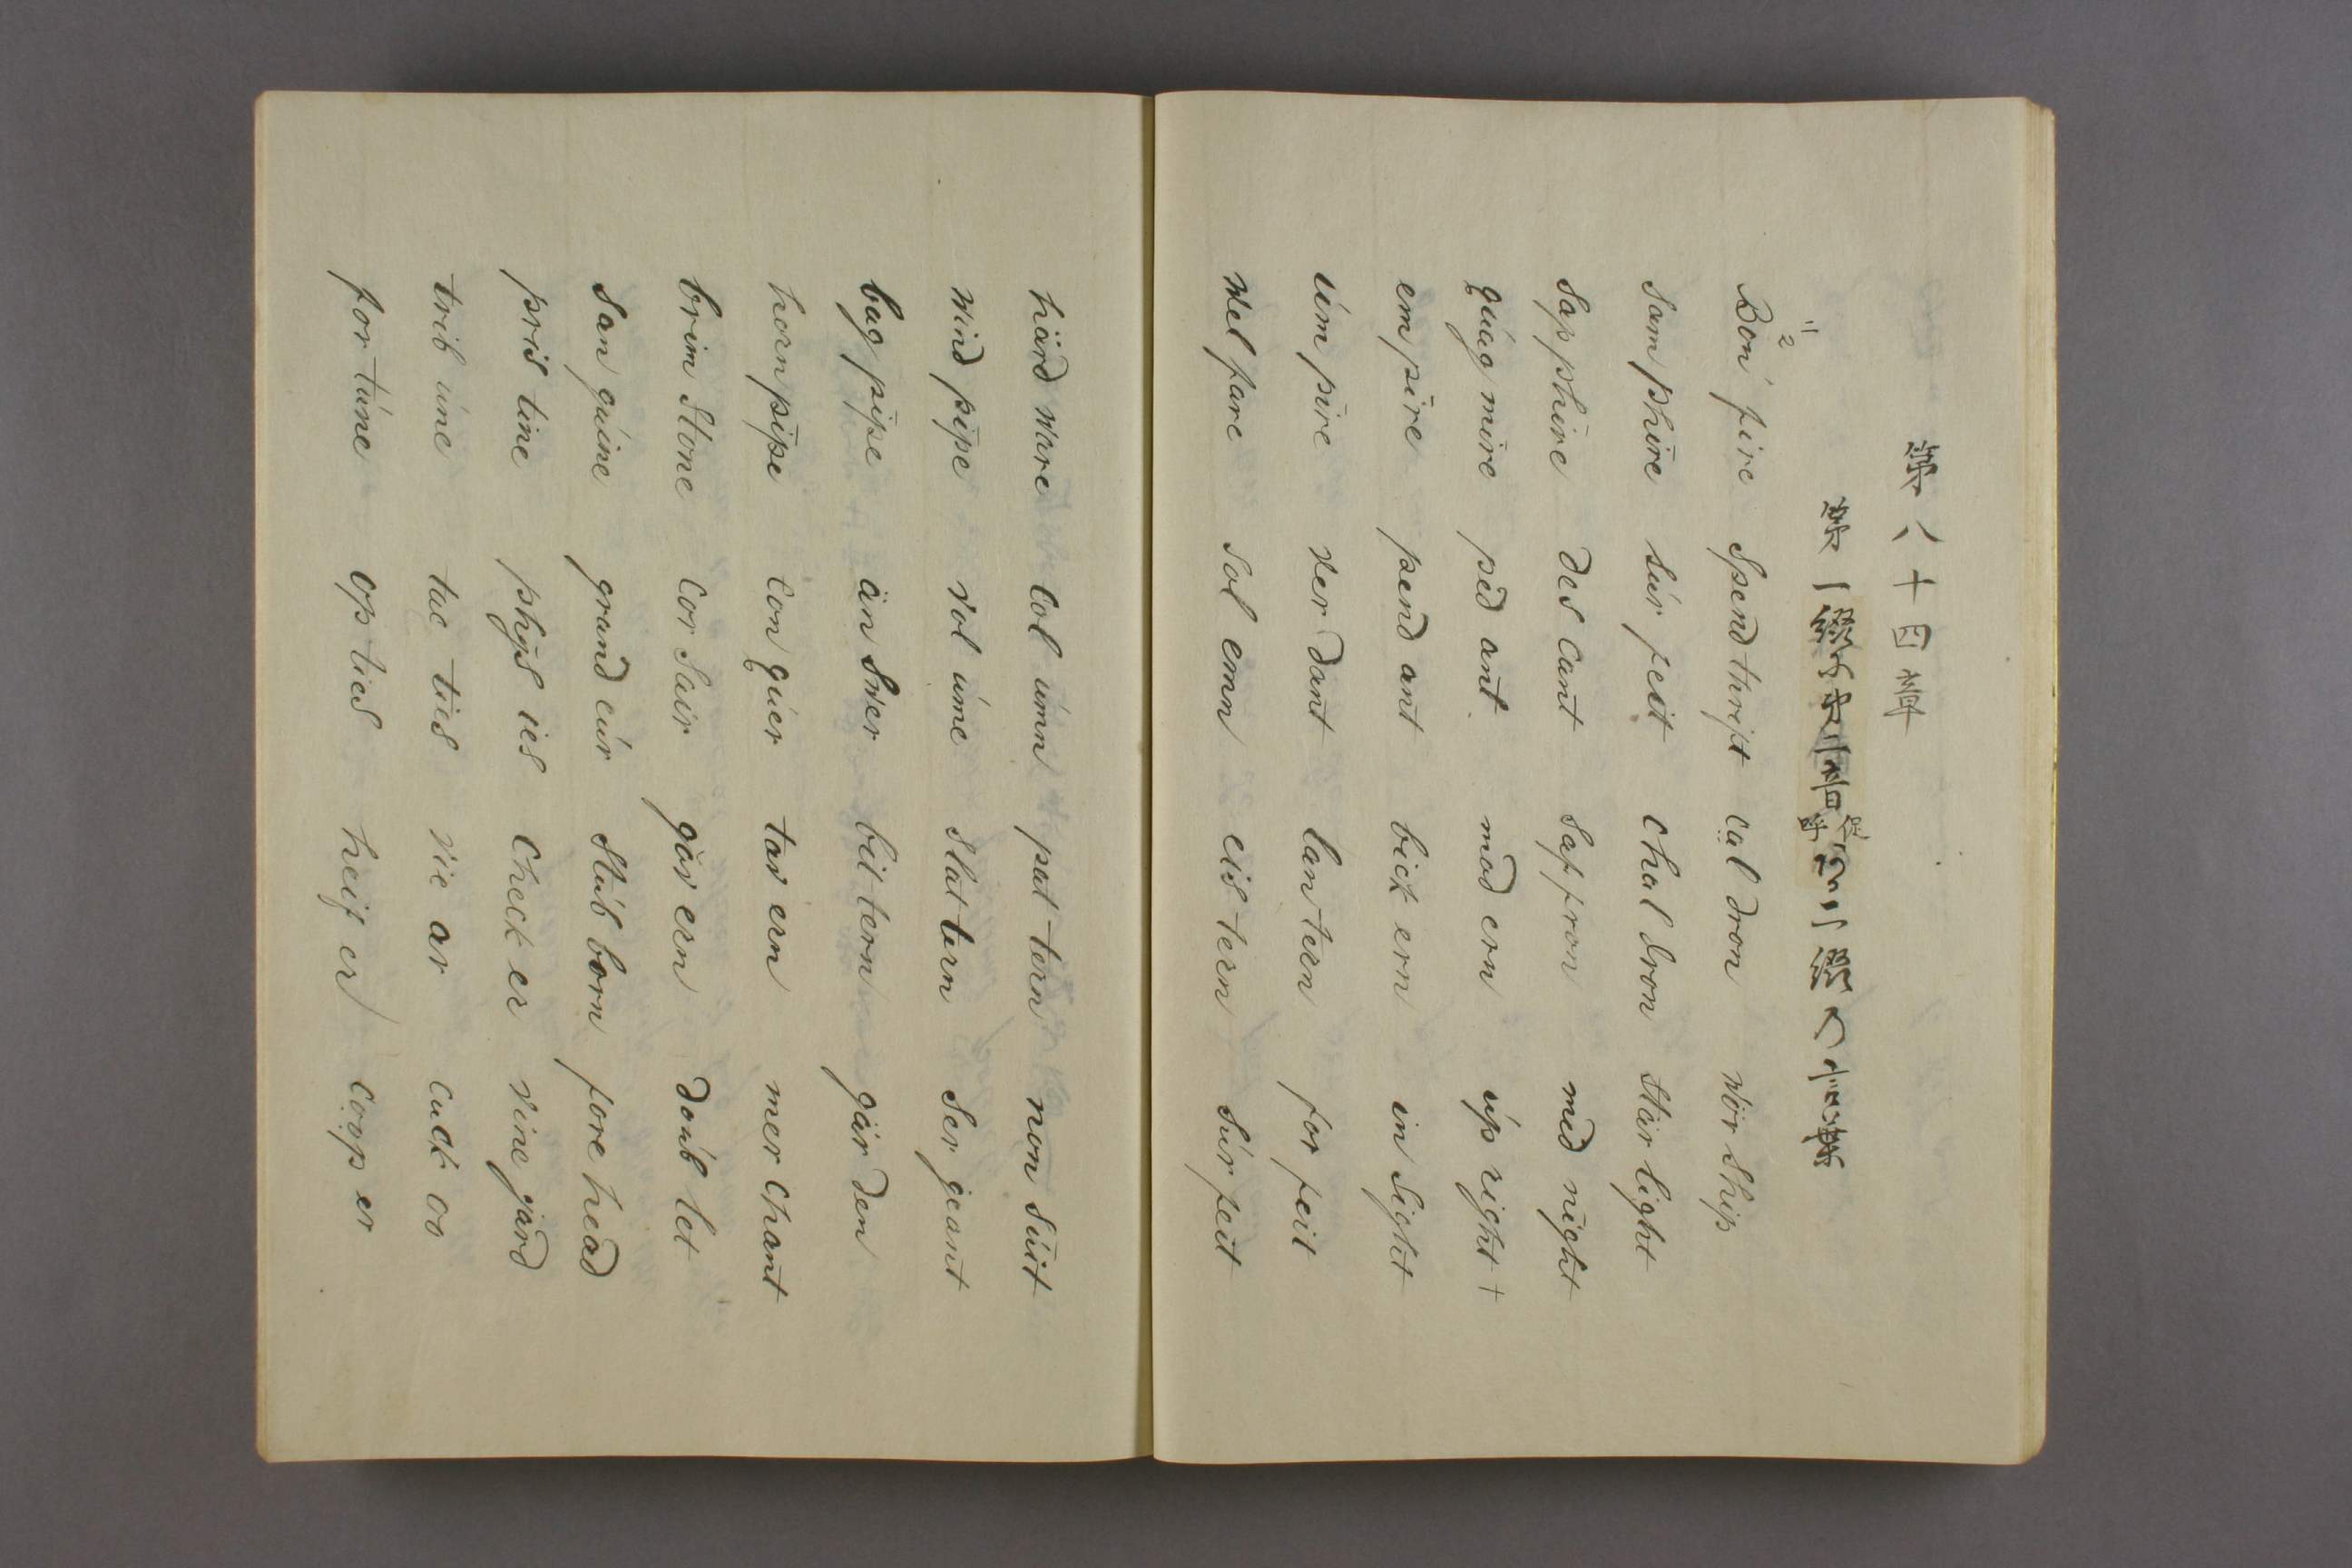 第八十四章
第一綴
促呼
綴
Bon fire spend thrift cal dron wor ship
sam phire sur feit chal dron star light
sap phire des cant saf fron mid night
quag mire ped ant mod ern up right +
em pire pend ant bick ern in sight
um pire ver dant lan tern for feit
wel fare sol emn cis tern sur feit
hard ware col umn pat tern non suit
wind pipe vol ume slat tern ser geant
bag pipe an swer bit tern gar den
horn pipe con quer tav ern mer chant
brim stone cor sair gov ern doub let
san guine grand eur stub born fore head
pris tine phys ics check er vine yard
trib une tac tics vic ar cuck oo
for tune op tics heif er coop er